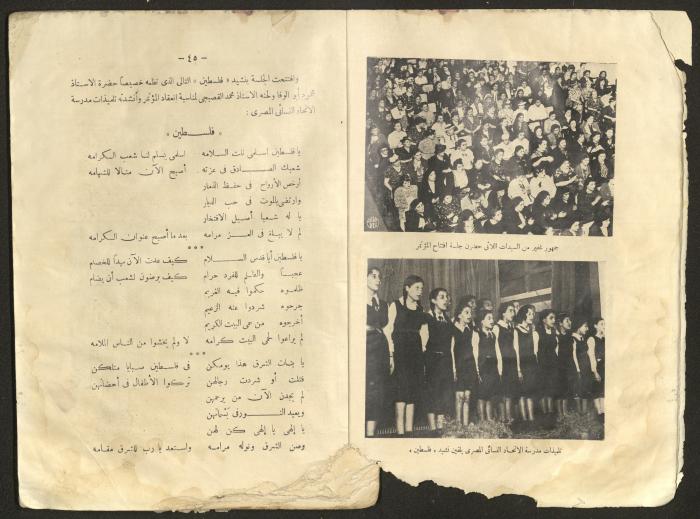 — ٤٥ —
وافتتحت الجلسة بنشيد « فلسطين » التالى الذى نظمه خصيصاً حضرة الاستاذ
محمود أبو الوفا ولحنه الاستاذ محمد القصبجى لمناسبة انعقاد المؤتمر وأنشدته تلميذات مدرسة
الاتحاد النسائى المصرى :
« فلسطين »
يا فلسطين اسلمى نلت السلامه اسلمى يسلم لنا شعب الكرامه
شعبك الصادق فى عزته أصبح الآن مثالا للشهامه
أرخص الأرواح فى حفظ الذمار
وارتضى بالموت فى حب الديار
يا له شعباً أصيل الافتخار
لم لا يبلغ فى العز مرامه بعد ما أصبح عنوان الكرامه
***
يا فلسطين أيا قدس السلام كيف عدت الآن ميداناً للخصام
عجباً والظلم للفرد حرام كيف يرضون لشعب أن يضام
ظلموه حكموا فيه الغريم
جرحوه شردوا عنه الزعيم
أخرجوه من حمى البيت الكريم
لم يراعوا لحمى البيت كرامه لا ولم يخشوا من الناس الملامه
***
يا بنات الشرق هذا يومكن فى فلسطين سبايا مثلكن
قتلت أو شردت رجالهن تركوا الأطفال فى أحضانهن
لم يجدن الآن من يرحمهن
ويعيد النور فى بسماتهن
يا إلهى يا إلهى كن لهن
وصن الشرق وتوله مرامه واستعد يا رب للشرق مقامه
جمهور غفير من السيدات اللاتى حضرن جلسة افتتاح المؤتمر
تلميذات مدرسة الاتحاد النسائى المصرى يلقين نشيد « فلسطين »